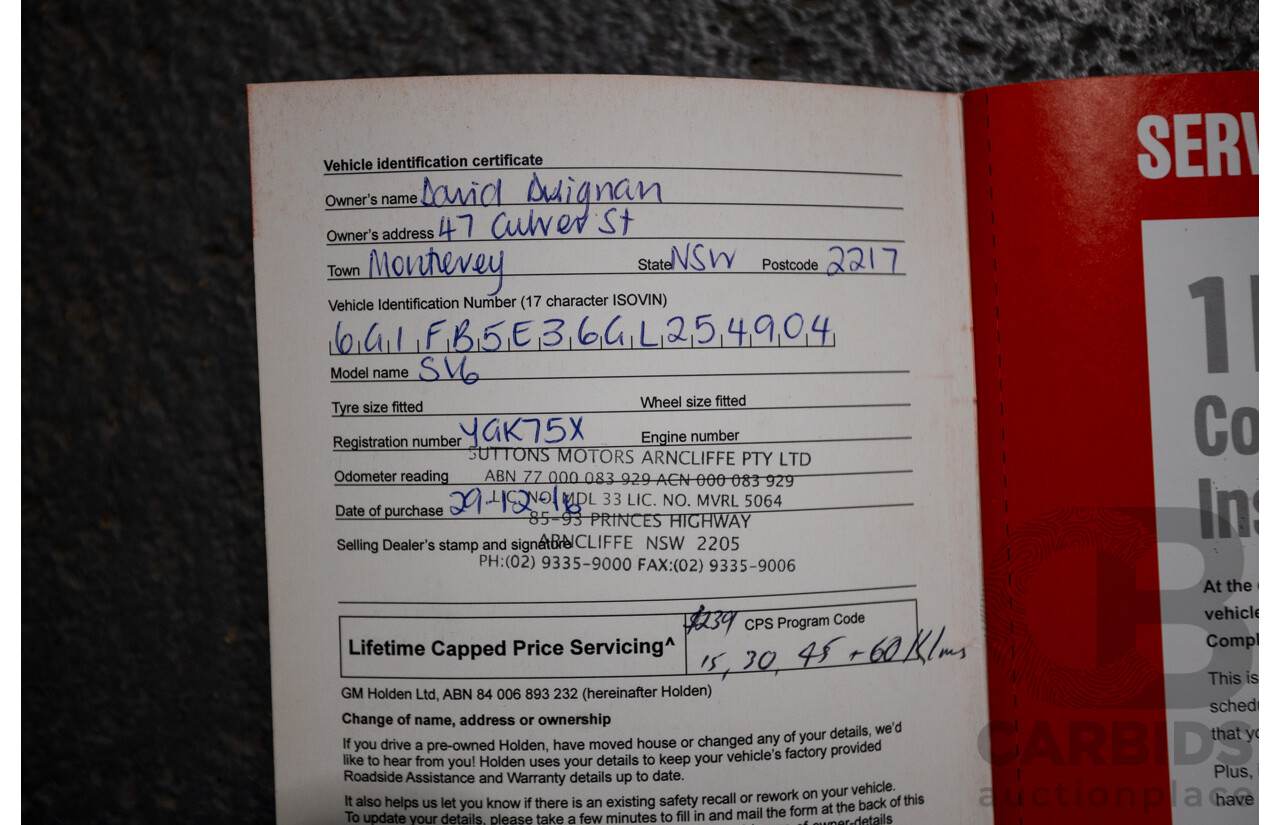 Vehicle identification certificate
Owner's name David Duignan
Owner's address 47 Culver St
Town Monterey State NSW Postcode 2217
Vehicle Identification Number (17 character ISOVIN)
6G1FB5E36GL254904
Model name SV6
Tyre size fitted Wheel size fitted
Registration number YGK75X Engine number
SUTTONS MOTORS ARNCLIFFE PTY LTD
Odometer reading ABN 77 000 083 929 ACN 000 083 929
LIC NO MDL 33 LIC. NO. MVRL 5064
Date of purchase 29-12-16
85-93 PRINCES HIGHWAY
Selling Dealer's stamp and signature ARNCLIFFE NSW 2205
PH:(02) 9335-9000 FAX:(02) 9335-9006
Lifetime Capped Price Servicing^
$239 CPS Program Code
15, 30, 45 + 60 K/ms
GM Holden Ltd, ABN 84 006 893 232 (hereinafter Holden)
Change of name, address or ownership
If you drive a pre-owned Holden, have moved house or changed any of your details, we'd
like to hear from you! Holden uses your details to keep your vehicle's factory provided
Roadside Assistance and Warranty details up to date.
It also helps us let you know if there is an existing safety recall or rework on your vehicle.
To update your details, please take a few minutes to fill in and mail the form at the back of this
owner-details
SERV
1
Co
Ins
At the
vehicle
Compl
This is
schedu
that yo
Plus,
have
CARBIDS
auctionplace